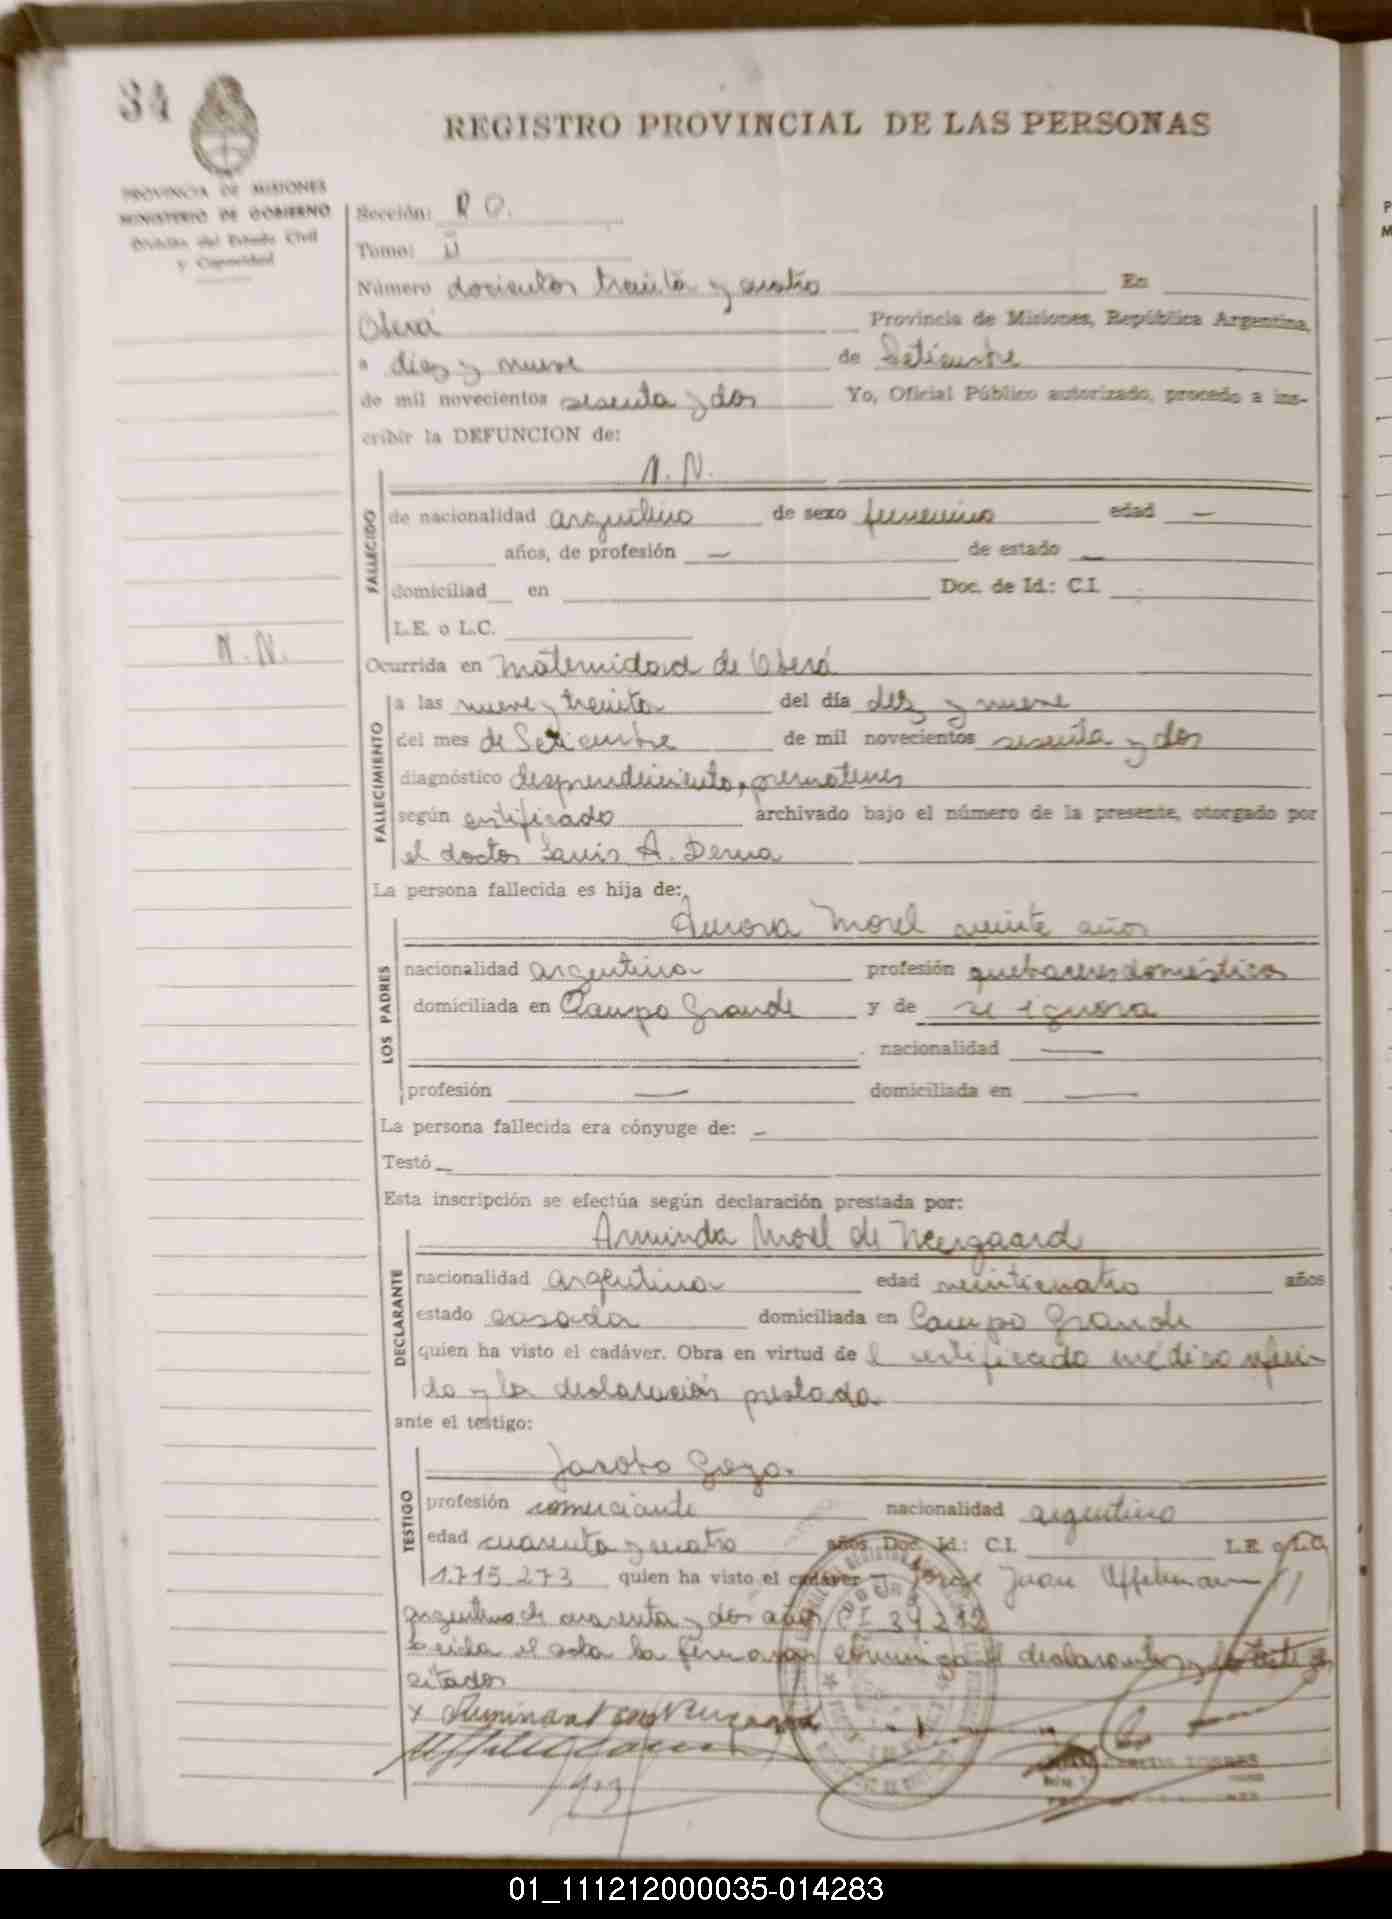 34
REGISTRO PROVINCIAL DE LAS PERSONAS
PROVINCIA DE MISIONES
MINISTERIO DE GOBIERNO
División del Estado Civil
y Capacidad
Sección: R O.
Tomo: II
Número docientos treinta y cuatro En
Oberá Provincia de Misiones, República Argentina,
a diez y nueve de Setiembre
de mil novecientos sesenta y dos Yo, Oficial Público autorizado, procedo a ins-
cribir la DEFUNCION de:
N. N.
FALLECIDO
de nacionalidad argentino de sexo femenino edad —
años, de profesión — de estado —
domiciliad en Doc. de Id.: C.I.
L.E. o L.C.
N. N.
Ocurrida en Maternidad de Oberá
FALLECIMIENTO
a las nueve y treinta del día diez y nueve
del mes de Setiembre de mil novecientos sesenta y dos
diagnóstico desprendimiento, prematuro
según certificado archivado bajo el número de la presente, otorgado por
el doctor Luis A. Derna
La persona fallecida es hija de:
LOS PADRES
Aurora Morel veinte años
nacionalidad argentina profesión quehaceres domésticos
domiciliada en Campo Grande y de se ignora
nacionalidad —
profesión — domiciliada en —
La persona fallecida era cónyuge de: —
Testó —
Esta inscripción se efectúa según declaración prestada por:
DECLARANTE
Arminda Morel de Neergaard
nacionalidad argentina edad veinticuatro años
estado casada domiciliada en Campo Grande
quien ha visto el cadáver. Obra en virtud de l certificado médico referi-
do y la declaración prestada
ante el testigo:
TESTIGO
Jacobo Gozo.
profesión comerciante nacionalidad argentino
edad cuarenta y cuatro años, Doc. Id.: C.I. L.E. o L.C.
1.715.273 quien ha visto el cadáver — Jorge Juan Uffelmann
argentino de cuarenta y dos años CI 34212
Leida el acta la firman conmigo el declarante y los testigos
citados
01_111212000035-014283